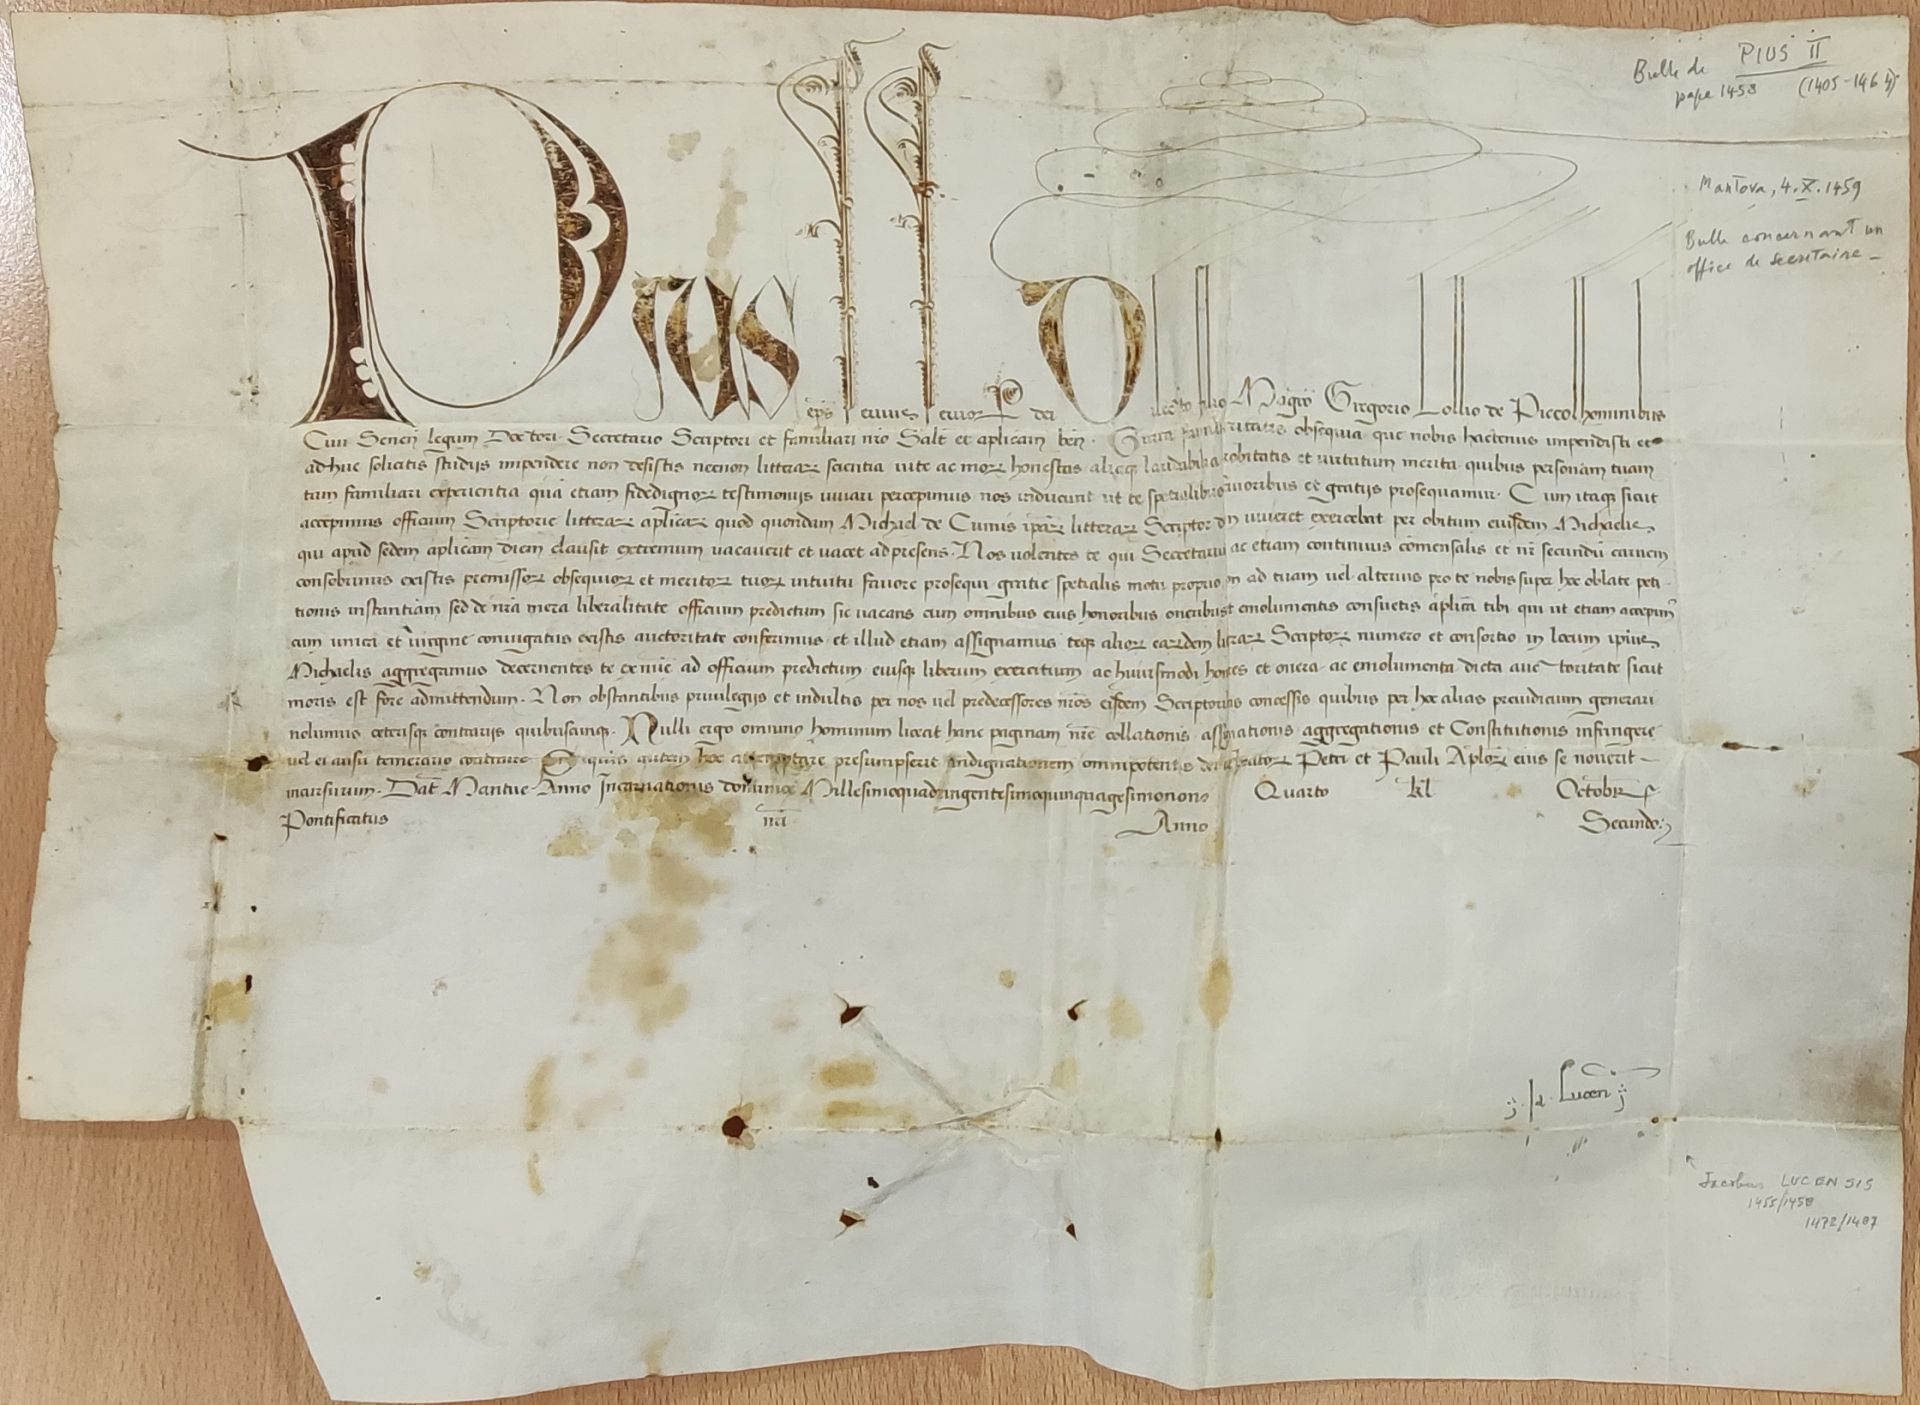 Pius eps servus servor dei Dilecto filio Magro Gregorio Lollio de Piccolhominibus
Civi Senen legum Doctori Secretario Scriptori et familiari nro Salt et aplicam ben. Grata familiaritatis obsequia que nobis hactenus impendisti et
adhuc solicitis studijs impendere non desistis necnon litterar scientia vite ac mor honestas aliaq laudabilia probitatis et virtutum merita quibus personam tuam
tam familiari experientia qua etiam fidedignor testimonijs iuvari percepimus nos inducunt ut te spetialibus favoribus et gratijs prosequamur. Cum itaq sicut
accepimus officium Scriptorie litterar aplicar quod quondam Michael de Cumis ipar litterar Scriptor dum viveret exercebat per obitum eiusdem Michaelis
qui apud sedem aplicam diem clausit extremum vacaverit et vacet ad presens. Nos volentes te qui Secretarius ac etiam continuus comensalis et nr secundu carnem
consobrinus existis premissor obsequior et meritor tuor intuitu favore prosequi gratie spetialis motu proprio non ad tuam vel alterius pro te nobis super hoc oblate peti
tionis instantiam sed de nra mera liberalitate officium predictum sic vacans cum omnibus eius honoribus oneribus et emolumentis consuetis aplica tibi qui ut etiam accepim
cum unica et virgine coniugatus existis auctoritate conferimus et illud etiam assignamus teq alior eardem lrar Scriptor numero et consortio in locum ipius
Michaelis aggregamus decernentes te ex nuc ad officium predictum eiusq liberum exercitium ac huiusmodi honores et onera ac emolumenta dicta auctoritate sicut
moris est fore admittendum. Non obstantibus privilegijs et indultis per nos vel predecessores nros eisdem Scriptoribus concessis quibus per hoc alias preiudicium generari
nolumus ceterisq contrarijs quibuscunq. Nulli ergo omnino hominum liceat hanc paginam nre collationis assignationis aggregationis et Constitutionis infringere
vel ei ausu temerario contraire Siquis autem hoc attemptare presumpserit indignationem omnipotentis dei et beator Petri et Pauli Aplor eius se noverit
incursurum. Dat Mantue Anno Incarnationis dominice Millesimoquadringentesimoquinquagesimonono Quarto kl Octobr
Pontificatus nri Anno Secundo
Ja Lucen
Bulle de PIUS II
pape 1458 (1405-1464)
Mantova, 4.X.1459
Bulle concernant un
office de secretaire
Jacobus LUCENSIS
1455/1458
1472/1487